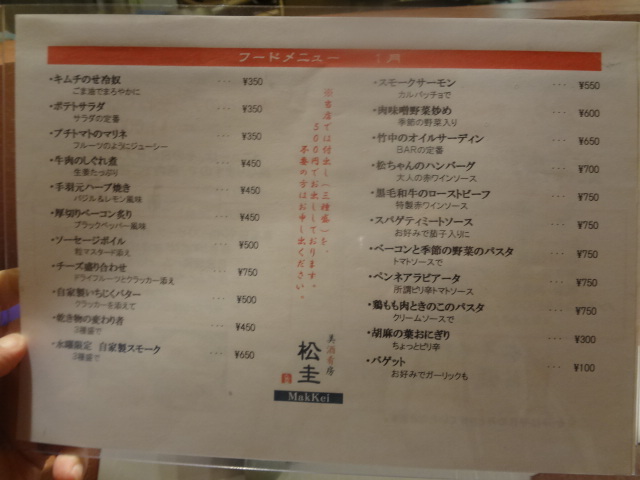 フードメニュー 1月
・キムチのせ冷奴 … ¥350
ごま油でまろやかに
・ポテトサラダ … ¥350
サラダの定番
・プチトマトのマリネ … ¥350
フルーツのようにジューシー
・牛肉のしぐれ煮 … ¥450
生姜たっぷり
・手羽元ハーブ焼き … ¥450
バジル&レモン風味
・厚切りベーコン炙り … ¥450
ブラックペッパー風味
・ソーセージボイル … ¥500
粒マスタード添え
・チーズ盛り合わせ … ¥750
ドライフルーツとクラッカー添え
・自家製いちじくバター … ¥500
クラッカーを添えて
・乾き物の変わり者 … ¥450
3種盛で
・水曜限定 自家製スモーク … ¥650
3種盛で
※当店では付出し(三種盛)を、
500円でお出ししております。
不要の方はお申し出ください。
美酒肴房
松圭
MakKei
・スモークサーモン … ¥550
カルパッチョで
・肉味噌野菜炒め … ¥600
季節の野菜入り
・竹中のオイルサーディン … ¥650
BARの定番
・松ちゃんのハンバーグ … ¥700
大人の赤ワインソース
・黒毛和牛のローストビーフ … ¥750
特製赤ワインソース
・スパゲティミートソース … ¥750
お好みで茄子入りに
・ベーコンと季節の野菜のパスタ … ¥750
トマトソースで
・ペンネアラビアータ … ¥750
所謂ピリ辛トマトソース
・鶏もも肉ときのこのパスタ … ¥750
クリームソースで
・胡麻の葉おにぎり … ¥300
ちょっとピリ辛
・バゲット … ¥100
お好みでガーリックも